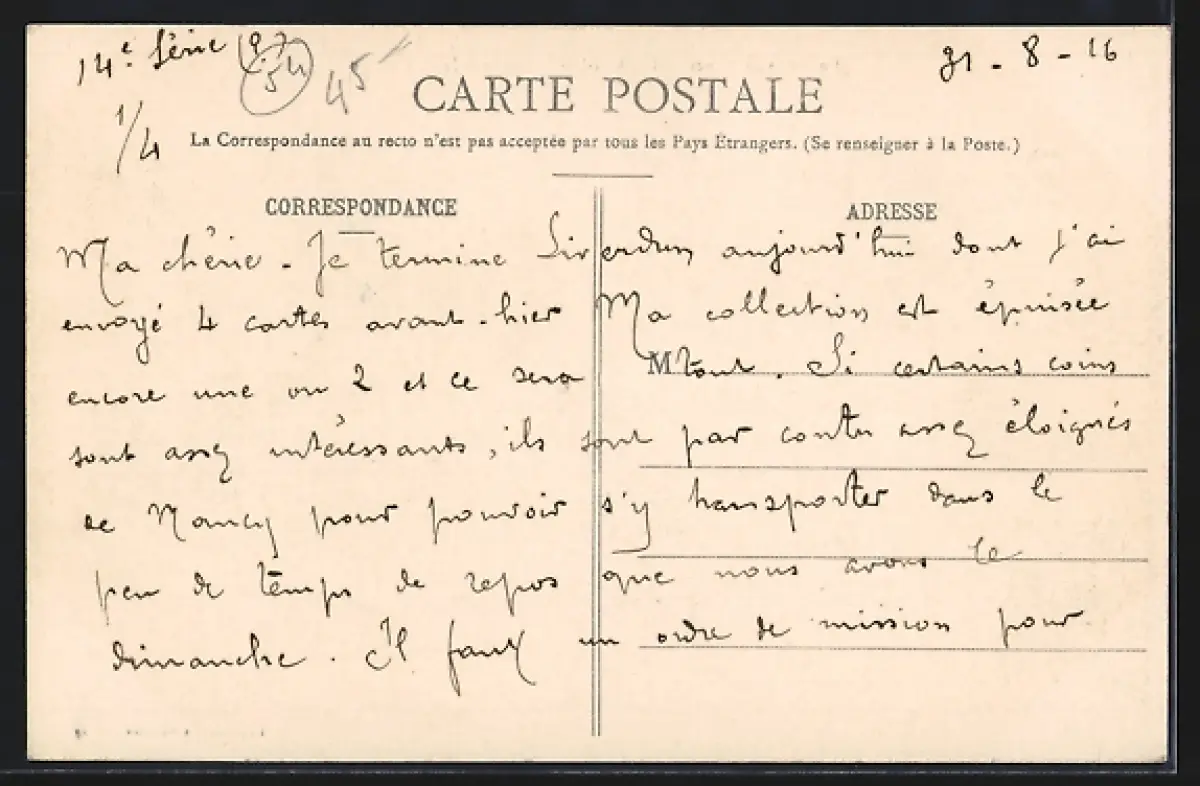 14e Série
54
45
31-8-16
1/4
CARTE POSTALE
La Correspondance au recto n'est pas acceptée par tous les Pays Étrangers. (Se renseigner à la Poste.)
CORRESPONDANCE
ADRESSE
Ma chérie. Je termine Liverdun aujourd'hui dont j'ai
envoyé 4 cartes avant-hier Ma collection est épuisée
encore une ou 2 et ce sera M tout. Si certains coins
sont assez intéressants, ils sont par contre assez éloignés
de Nancy pour pouvoir s'y transporter dans le
peu de temps de repos que nous avons le
dimanche. Il faut un ordre de mission pour